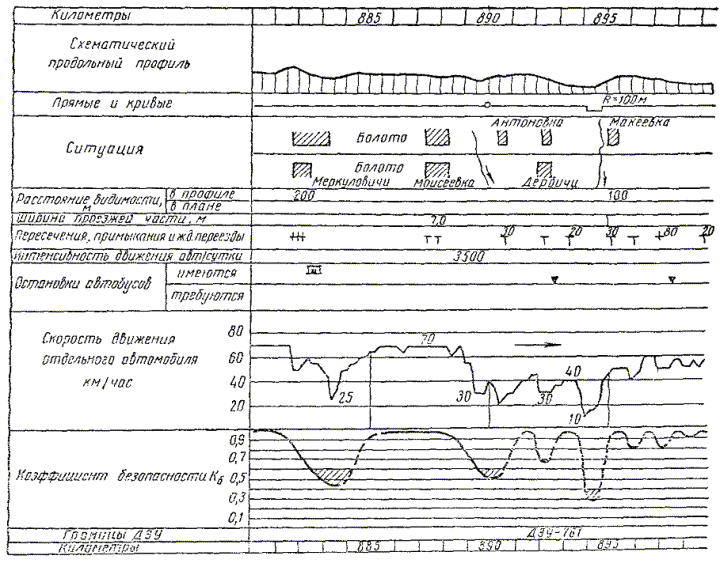 Километры 885 890 895
Схематический
продольный профиль
Прямые и кривые R=100м
Ситуация
Антоновка Макеевка
Болото
Болото
Меркуловичи Моисеевка Дербичи
Расстояние видимости, м
в профиле 200 100
в плане
Ширина проезжей части, м 7,0
Пересечения, примыкания и жд. переезды 20 20 30 80 20
Интенсивность движения авт/сутки 3500
Остановки автобусов
имеются
требуются
Скорость движения
отдельного автомобиля
км/час
80
60
40
20
70
25 30 30 40 10
Коэффициент безопасности Кб
0,9
0,7
0,5
0,3
0,1
Границы ДЭУ ДЭУ-761
Километры 885 890 895